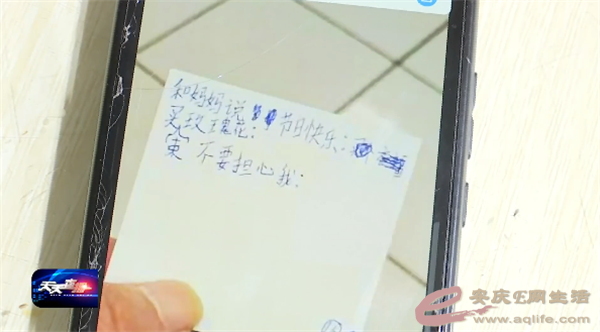 和妈妈说 节日快乐:
灵玫瑰花:
寞 不要担心我:
天天直播
安庆E网生活
www.aqlife.com